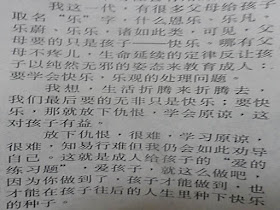 我这一代，有很多父母给孩子
取名“乐”字，什么恩乐、乐凡、
乐蔚、乐乐，诸如此类，可见，父
母要的只是孩子——快乐。哪有父
母不笨儿，生命延续的定律反让孩
子以纯然无邪的姿态来教育成人：
要学会快乐、乐观的处理问题。
我想，生活折腾来折腾去，
我们最后要的无非只是快乐；要快
乐，那就放下仇恨，学会原谅，这
对孩子有益。
放下仇恨，很难，学习原谅，
很难，知易行难但我仍会如此劝导
自己。这就是成人给孩子的“爱的
练习题”，爱孩子，就这么做吧，
因为你做到了，孩子才能做到，也
才能在孩子往后的人生里种下快乐
的种子。